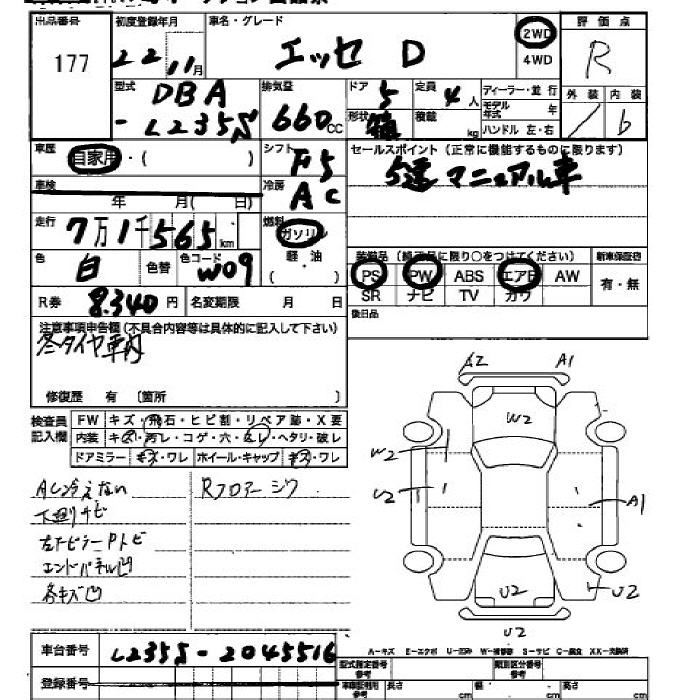 出品番号 初度登録年月 車名・グレード 2WD 評価点
177 22 11月 エッセ D 4WD R
型式 排気量 ドア 定員 ディーラー・並行 外装 内装
DBA 660cc 5 4人 モデル年式 年 / b
-L235S 形状 箱 積載 kg ハンドル 左・右
車歴 自家用・( ) シフト F5 セールスポイント(正常に機能するものに限ります)
5速マニュアル車
車検 年 月( 日) 冷房 AC
走行 7万1千565km 燃料 ガソリン
色 白 色替 色コード W09 軽油 装備品 (純正品に限り○をつけてください) 新車保証書
( ) PS PW ABS エアB AW 有・無
R券 8.340円 名変期限 月 日 SR ナビ TV カワ
注意事項申告欄(不具合内容等は具体的に記入して下さい) 後日品
冬タイヤ車内
修復歴 有 〔箇所 〕
A2 A1
検査員記入欄 FW キズ・飛石・ヒビ割・リペア跡・X要 W2
内装 キズ・汚レ・コゲ・穴・ムレ・ヘタリ・破レ
ドアミラー キズ・ワレ ホイール・キャップ キズ・ワレ W2
AC冷えない Rフロアーシワ U2 A1
下廻りサビ
左下ピラーPトビ
エンドパネル凹
各キズ凹 U2 U2
U2
車台番号 L235S-2045516 A-キズ E-エクボ U-凹み W-補修跡 S-サビ C-腐食 XX-交換済
登録番号 型式指定番号 類別区分番号
長さ cm 幅 cm 高さ cm